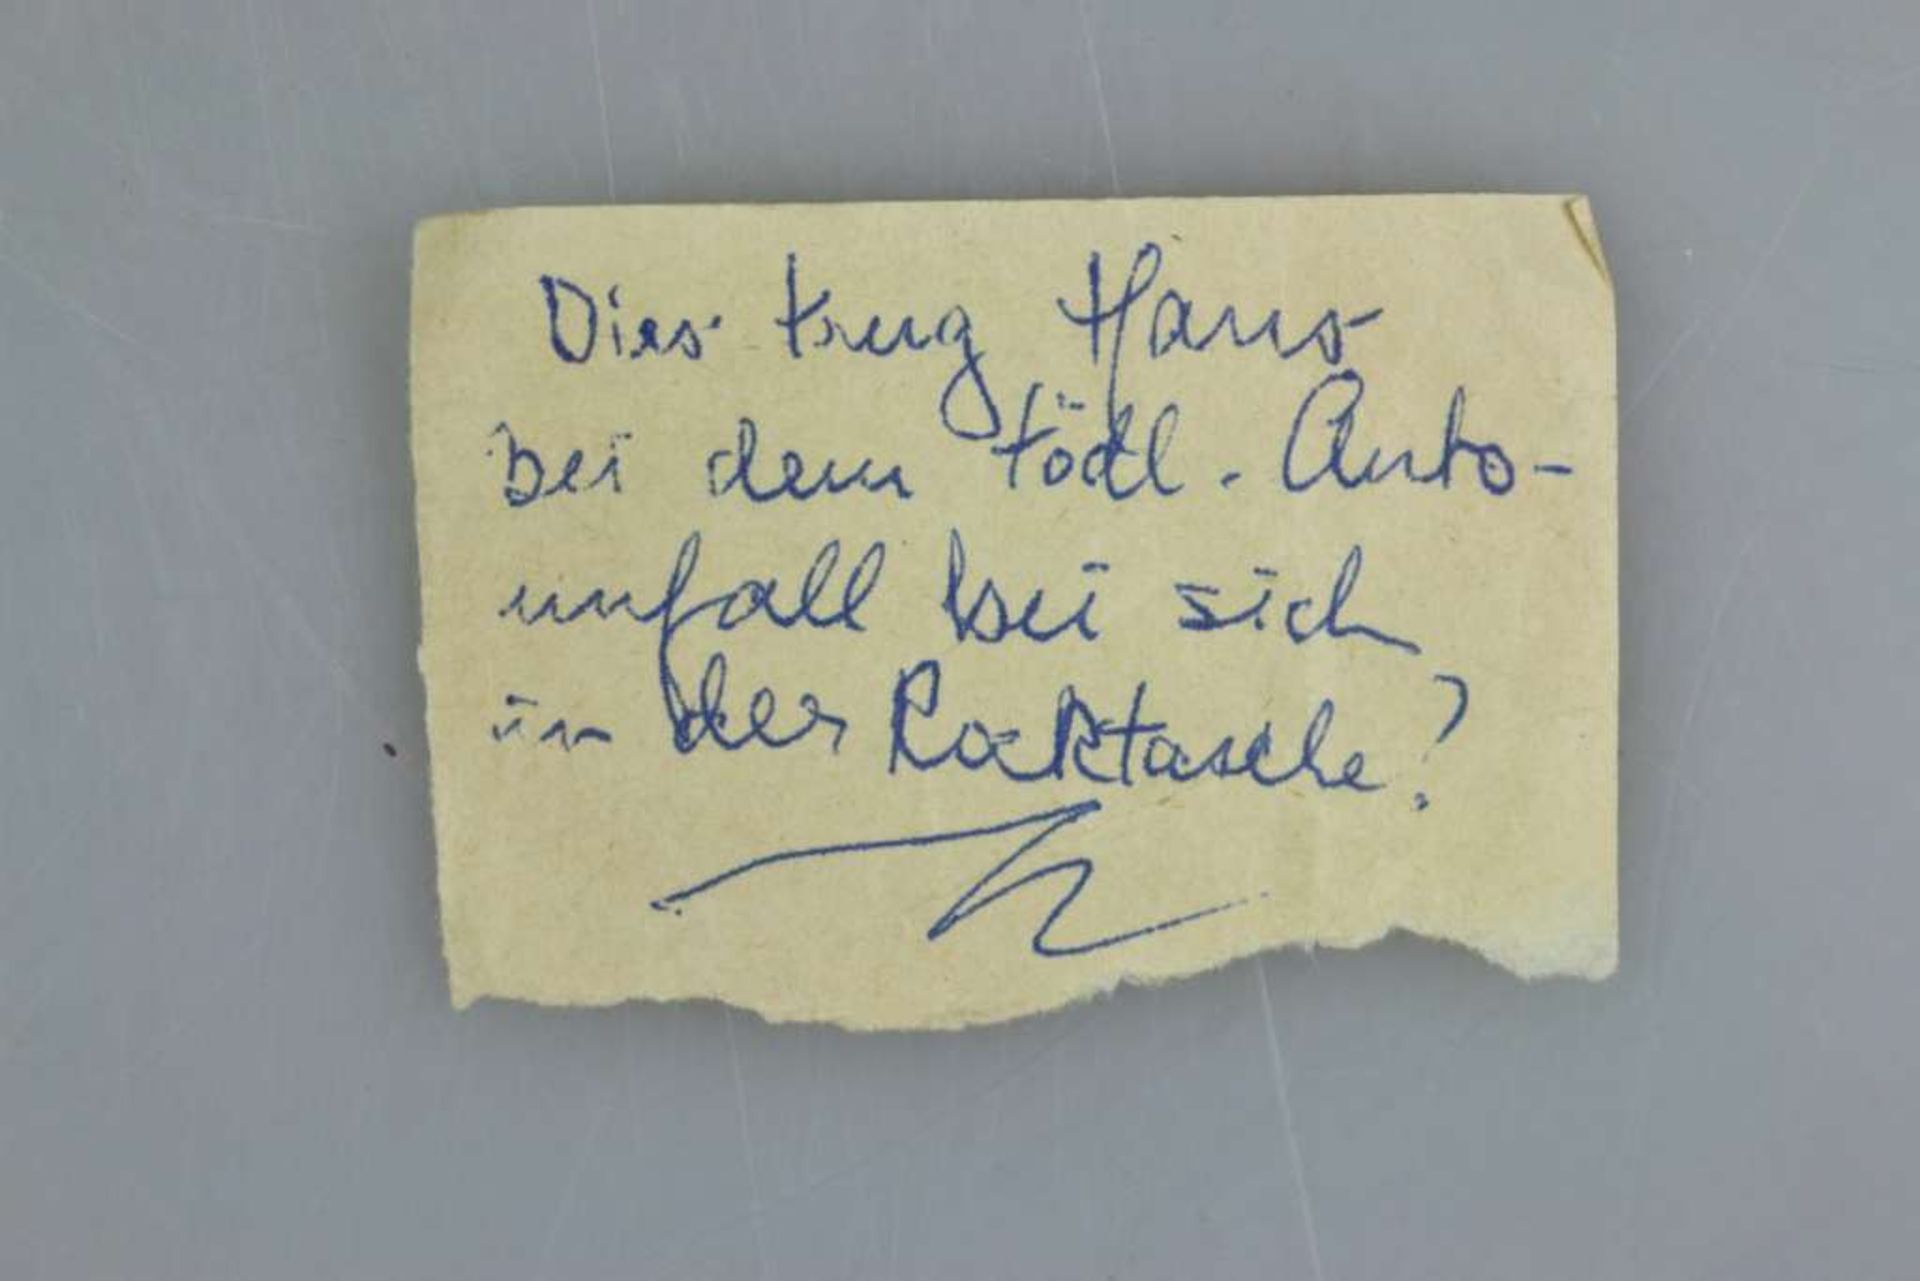 Dies trug Hans
bei dem tödl. Auto-
unfall bei sich
in der Rocktasche?